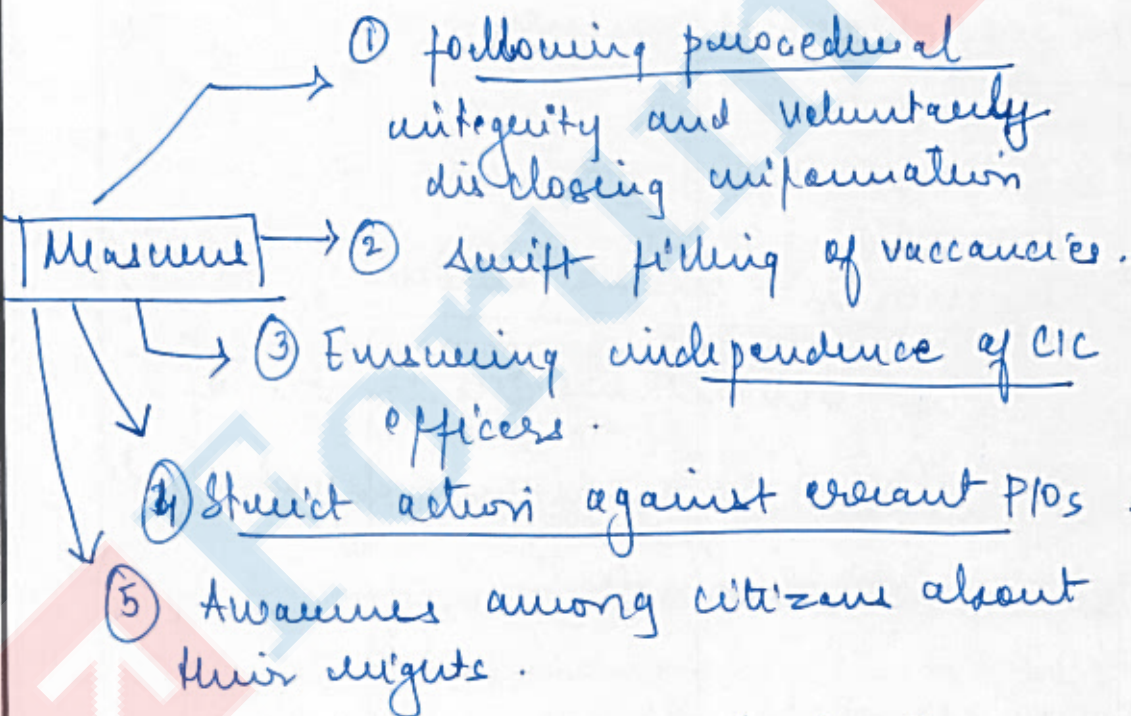 ① following procedural
integrity and voluntarily
disclosing information
Measures
② Swift filling of vaccancies.
③ Ensuring independence of CIC
officers.
④ Strict action against errant PIOs.
⑤ Awarenes among citizens about
their rights.
Forum